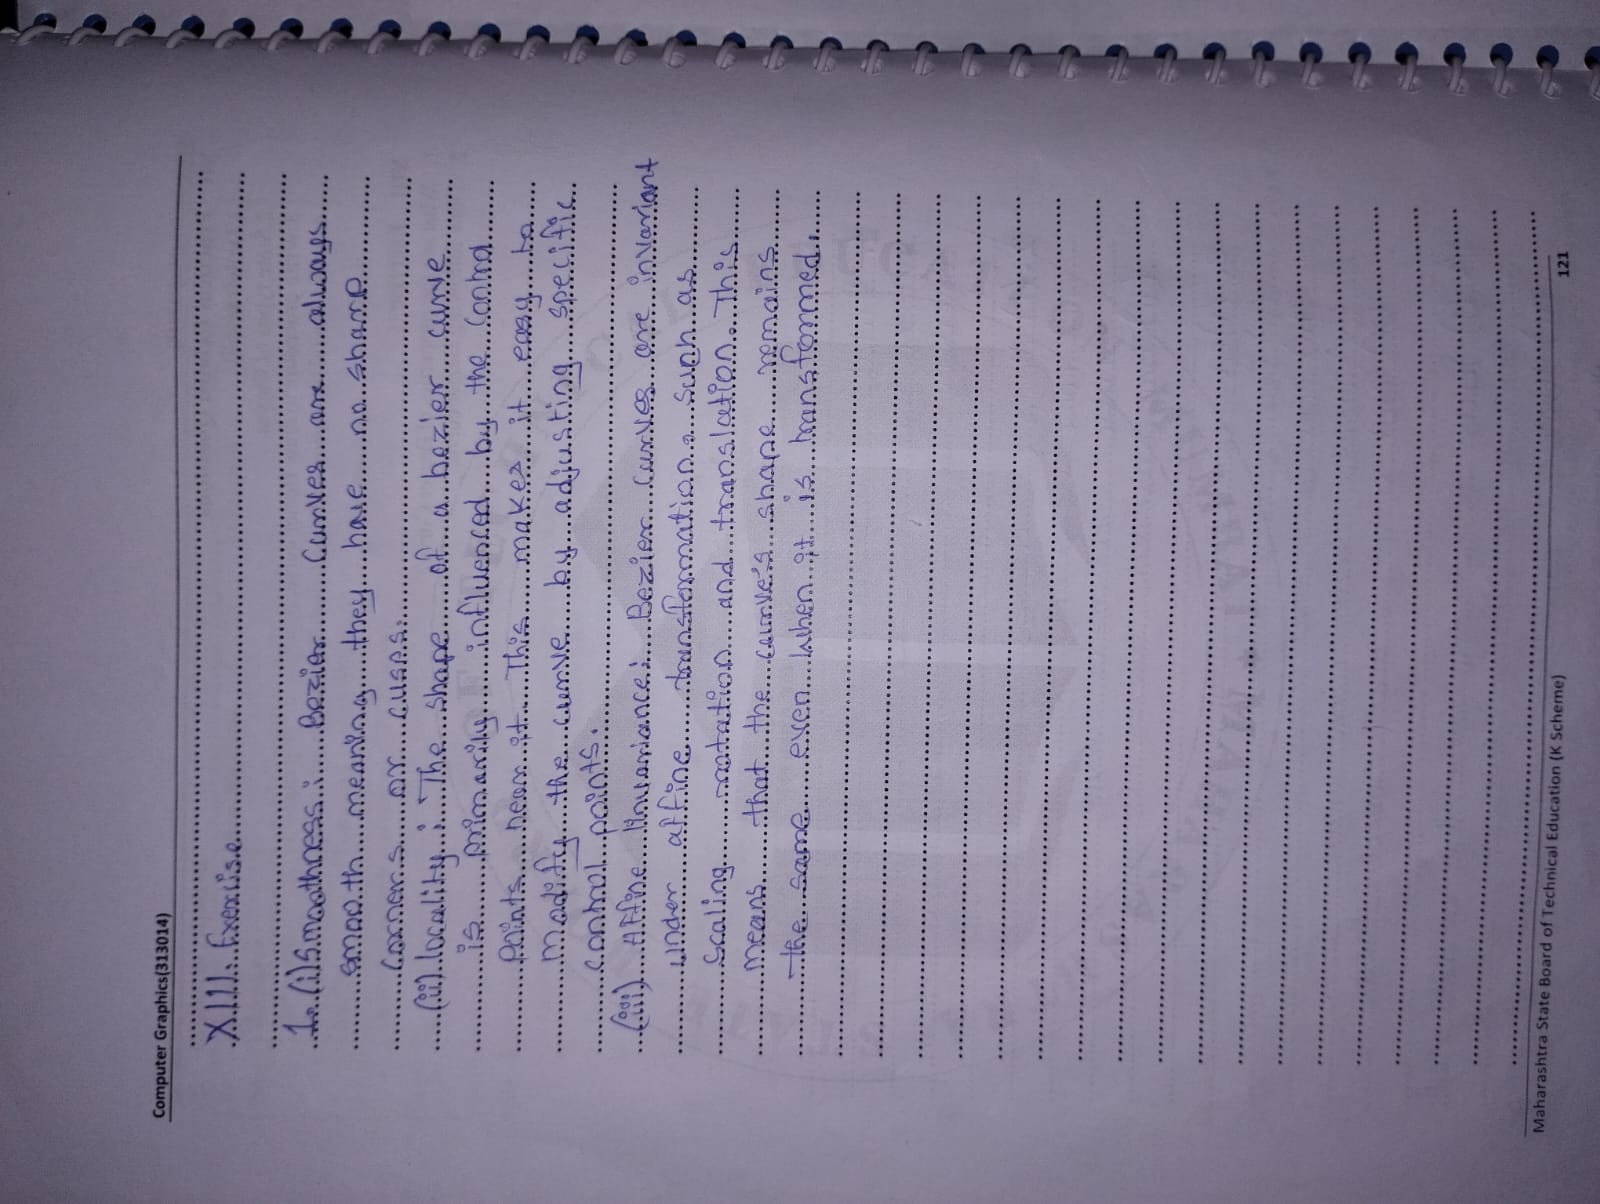 Computer Graphics(313014)
XIII. Exercise
1. (i) Smoothness: Bezier curves are always
smooth meaning they have no sharp
corners or cusps.
(ii) locality: The shape of a bezier curve
is primarily influenced by the control
points near it. This makes it easy to
modify the curve by adjusting specific
control points.
(iii) Affine Invariance: Bezier curves are invariant
under affine transformations such as
scaling rotation and translation. This
means that the curve's shape remains
the same even when it is transformed.
Maharashtra State Board of Technical Education (K Scheme)
121